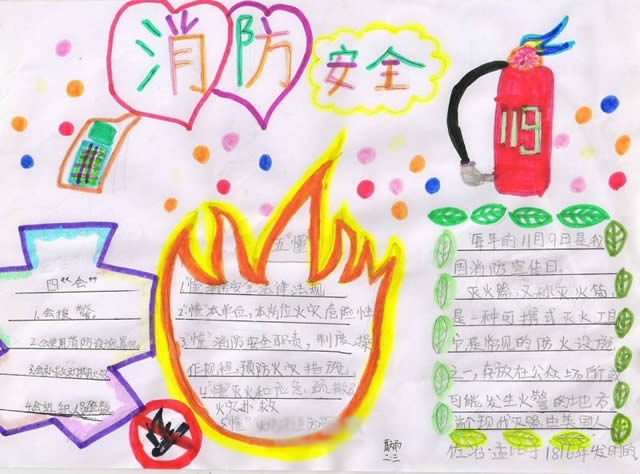 消防
安全
119
四“会”
1.会报警
2.会使用消防设施
五“懂”
1.“懂”消防安全法律法规
2.“懂”本单位,本岗位火灾危险性
3.“懂”消防安全职责,制度,操
作规程,预防火灾措施
4.“懂”灭火和应急,疏散
火灾扑救
5.“懂”
每年的11月9日是我
国消防宣传日。
灭火器,又称灭火筒,
是一种可携式灭火工具
它是常见的防火设施
之一,存放在公众场所或
可能发生火警的地方
现代灭火器由英国人
乔治·曼比于1816年发明的